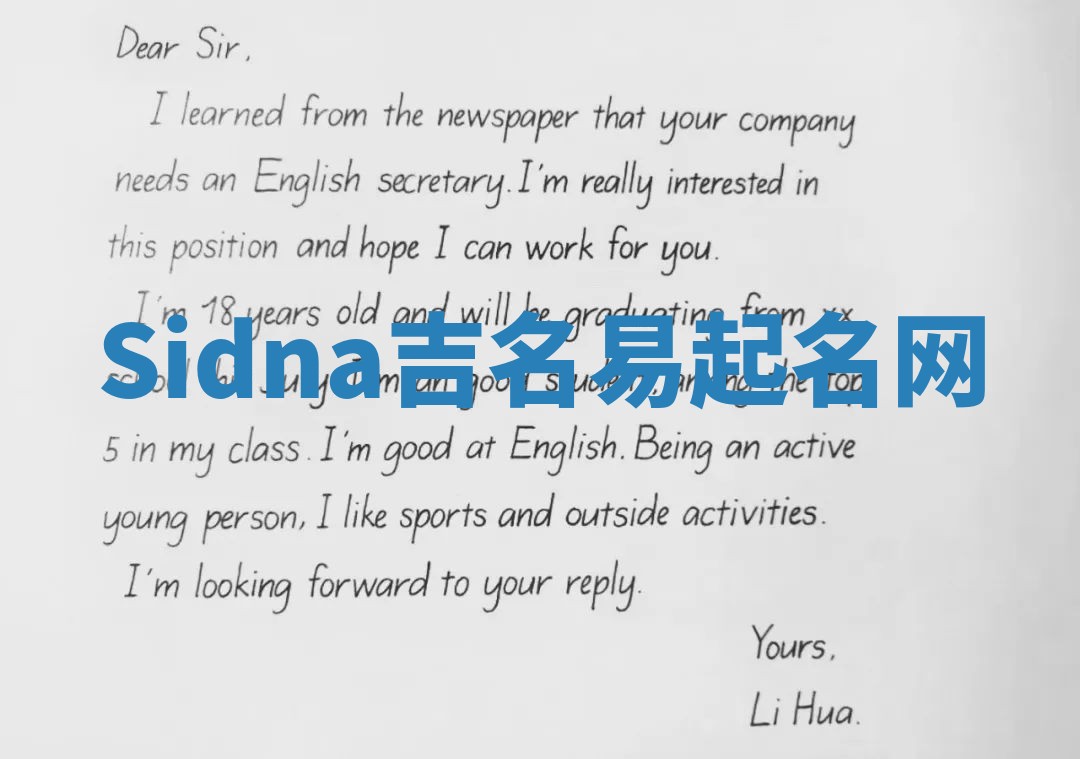 Dear Sir,
I learned from the newspaper that your company
needs an English secretary. I'm really interested in
this position and hope I can work for you.
I'm 18 years old and will be graduating from xx
Sidna吉名易起名网
school July I'm an good student, among the top
5 in my class. I'm good at English. Being an active
young person, I like sports and outside activities.
I'm looking forward to your reply.
Yours,
Li Hua.